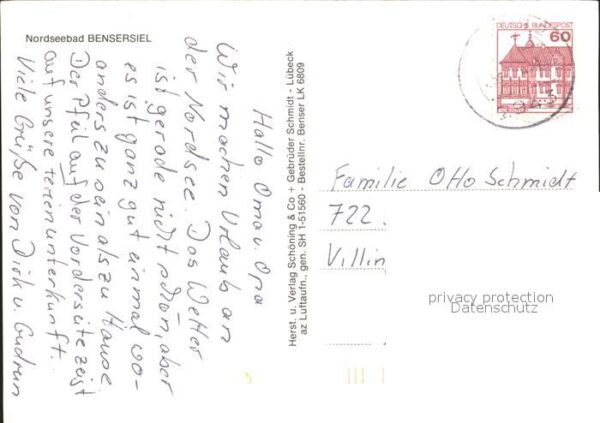 Nordseebad BENSERSIEL
Hallo Oma u. Opa
Wir machen Urlaub an
der Nordsee. Das Wetter
ist gerade nicht schön, aber
es ist ganz gut einmal wo-
anders zu sein als zu Hause
Der Pfeil auf der Vorderseite zeigt
auf unsere Ferienunterkunft.
Viele Grüße von Dirk u. Gudrun
Herst. u. Verlag Schöning & Co + Gebrüder Schmidt - Lübeck
az Luftaufn., gen. SH 1-51560 - Bestellnr. Benser LK 6809
DEUTSCHE BUNDESPOST
60
Familie Otto Schmidt
722.
Villin
privacy protection
Datenschutz